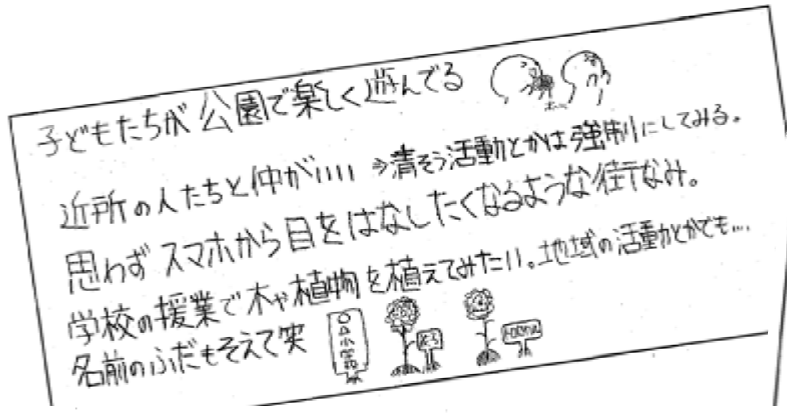 子どもたちが公園で楽しく遊んでる
近所の人たちと仲がいい ⇒清そう活動とかは強制にしてみる。
思わずスマホから目をはなしたくなるような街なみ。
学校の授業で木や植物を植えてみたい。地域の活動とかでも…
名前のふだもそえて笑